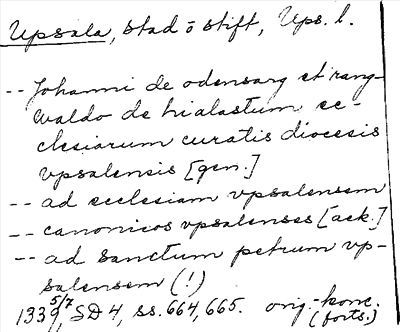 Upsala, stad o stift, Ups. l.
-- Johanni de odensarg et rang-
waldo de hialastum ec-
clesiarum curatis diocesis
vpsalensis [gen.]
-- ad ecclesiam vpsalensem
-- canonicos vpsalenses [ack.]
-- ad sanctum petrum vp-
salensem (!)
1339 5/7, SD 4, ss. 664, 665. orig.-konc.
(forts.)